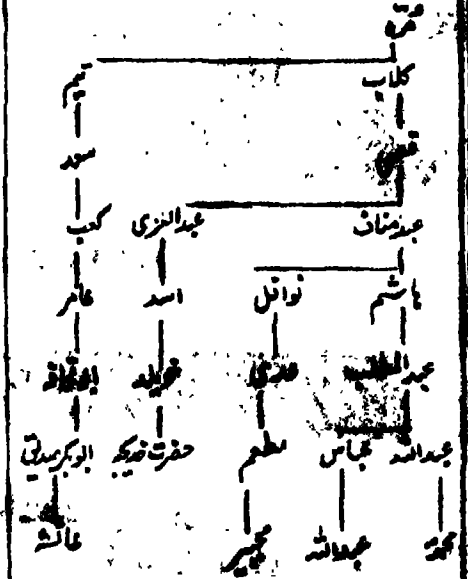 مرہ
کلاب تیم
قصی سعد
عبد مناف عبد العزی کعب
ہاشم نوافل اسد عامر
عبد المطلب عدی خویلد ابو قحافہ
عبد اللہ عباس مطعم حضرت خدیجہ ابوبکر صدیق
محمدؐ عبد اللہ جبیر عائشہ